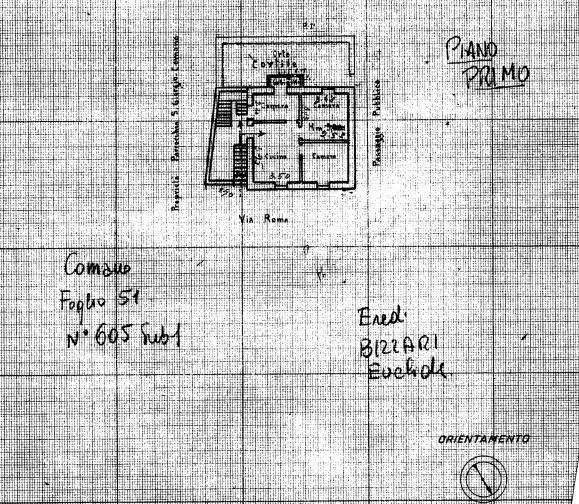 P.T.
PIANO
PRIMO
Orto
Cortile
Proprietà Parrocchia S. Giorgio Comano
Passaggio Pubblico
Camera
Camera
Cucina
Camera
3.50
Via Roma
Comano
Foglio 51
N° 605 Sub 1
Eredi
BIZZARI
Euclide
ORIENTAMENTO